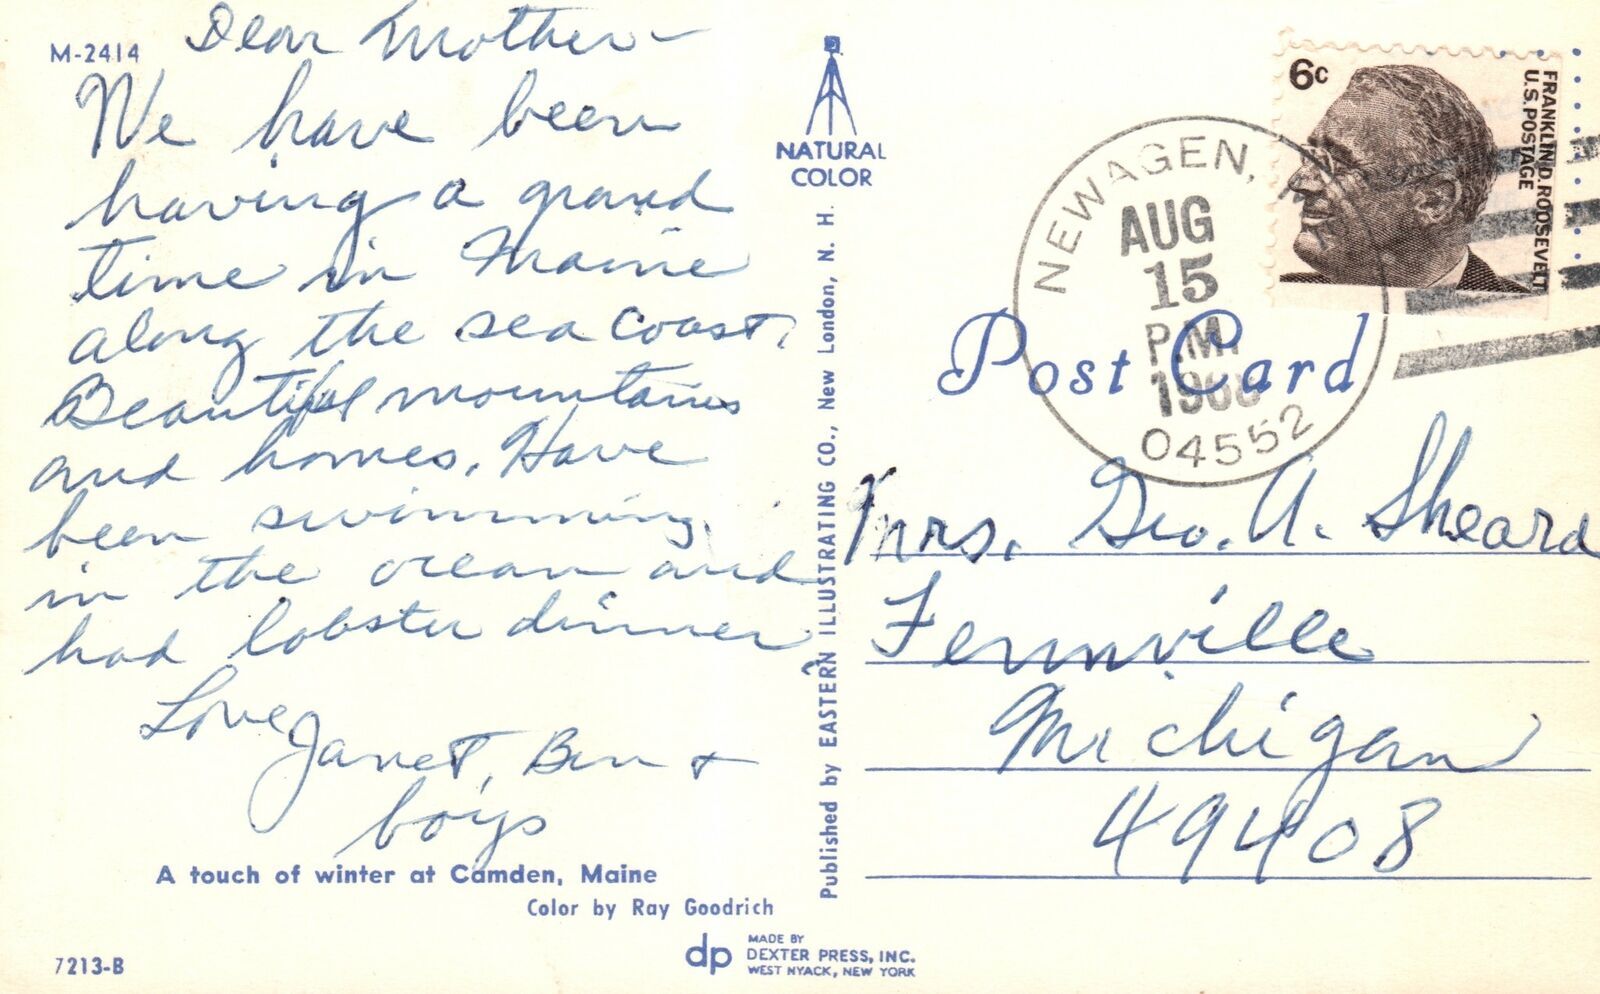 M-2414
Dear Mother -
We have been
having a grand
time in Maine
along the sea coast.
Beautiful mountains
and homes. Have
been swimming
in the ocean and
had lobster dinner
Love,
Janet, Ben +
boys
A touch of winter at Camden, Maine
Color by Ray Goodrich
7213-B
NATURAL
COLOR
Published by EASTERN ILLUSTRATING CO., New London, N. H.
dp
MADE BY
DEXTER PRESS, INC.
WEST NYACK, NEW YORK
6c
FRANKLIN D. ROOSEVELT
U.S. POSTAGE
NEWAGEN,
AUG
15
P.M.
04552
Post Card
Mrs. Geo. A. Sheard
Fennville
Michigan
49408